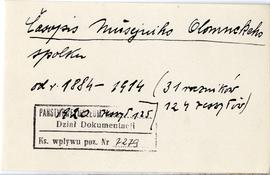 Časopis Musejniho Olomuckeho
spolku
od r. 1884-1914 (31 roczników
124 zeszytów)
1920 zeszyt 125
Dział Dokumentacji
Ks. wpływu poz. Nr 7279